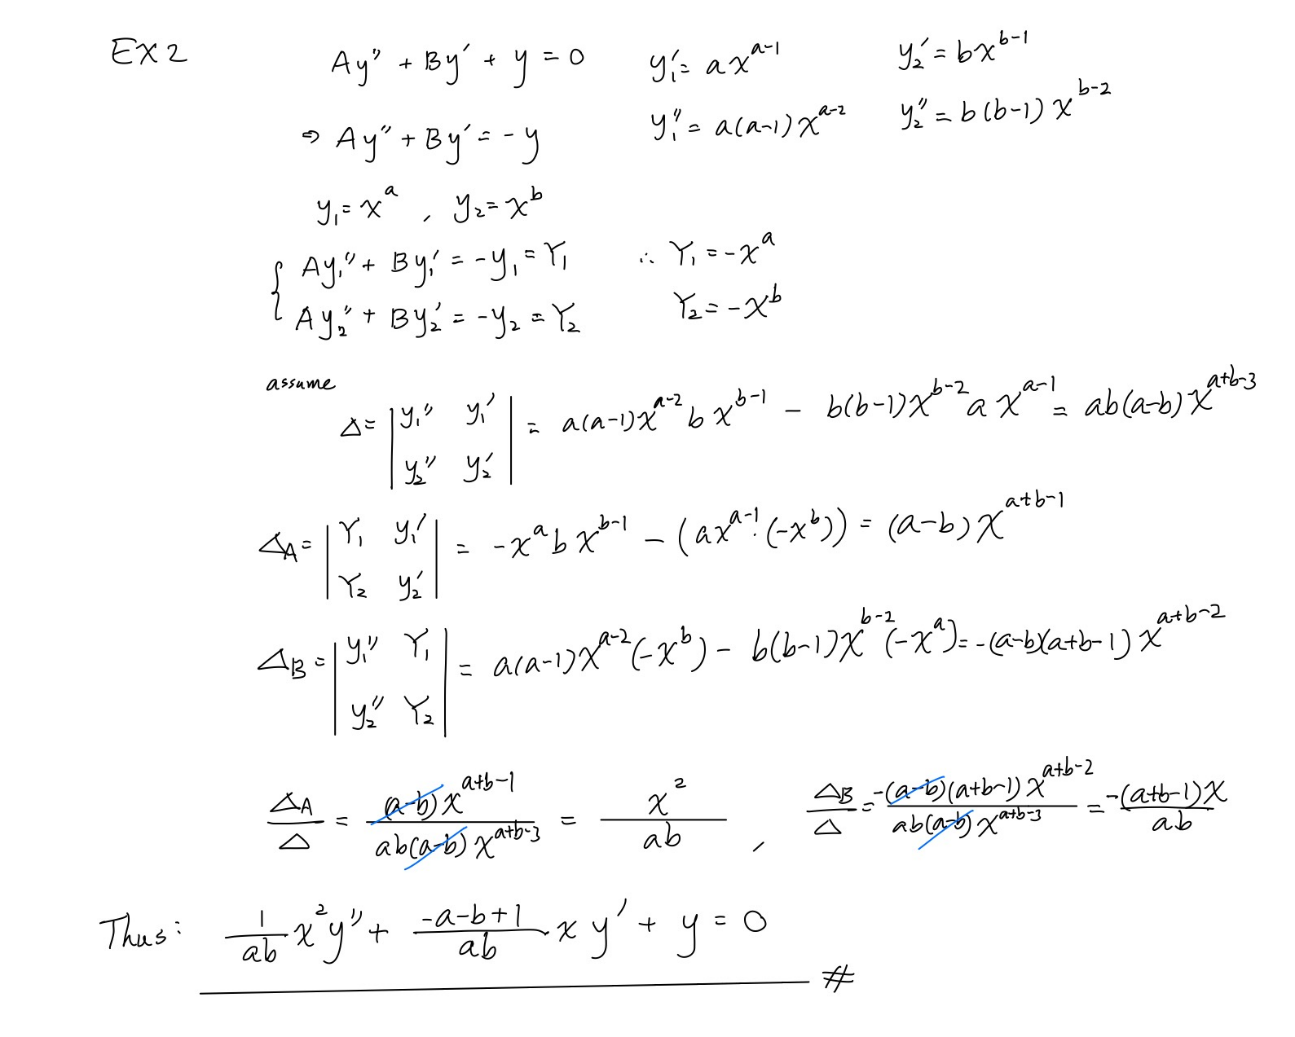 EX 2
Ay'' + By' + y = 0    y₁' = ax^{a-1}    y₂' = bx^{b-1}
⇒ Ay'' + By' = -y    y₁'' = a(a-1)x^{a-2}    y₂'' = b(b-1)x^{b-2}
y₁ = x^a , y₂ = x^b
{ Ay₁'' + By₁' = -y₁ = Y₁    ∴ Y₁ = -x^a
Ay₂'' + By₂' = -y₂ = Y₂    Y₂ = -x^b
assume
Δ = | y₁'' y₁' ; y₂'' y₂' | = a(a-1)x^{a-2} b x^{b-1} - b(b-1)x^{b-2} a x^{a-1} = ab(a-b)x^{a+b-3}
Δ_A = | Y₁ y₁' ; Y₂ y₂' | = -x^a b x^{b-1} - (ax^{a-1}·(-x^b)) = (a-b)x^{a+b-1}
Δ_B = | y₁'' Y₁ ; y₂'' Y₂ | = a(a-1)x^{a-2}(-x^b) - b(b-1)x^{b-2}(-x^a) = -(a-b)(a+b-1)x^{a+b-2}
Δ_A/Δ = (a-b)x^{a+b-1} / ab(a-b)x^{a+b-3} = x²/ab , Δ_B/Δ = -(a-b)(a+b-1)x^{a+b-2} / ab(a-b)x^{a+b-3} = -(a+b-1)x / ab
Thus: 1/ab x²y'' + (-a-b+1)/ab x y' + y = 0 #